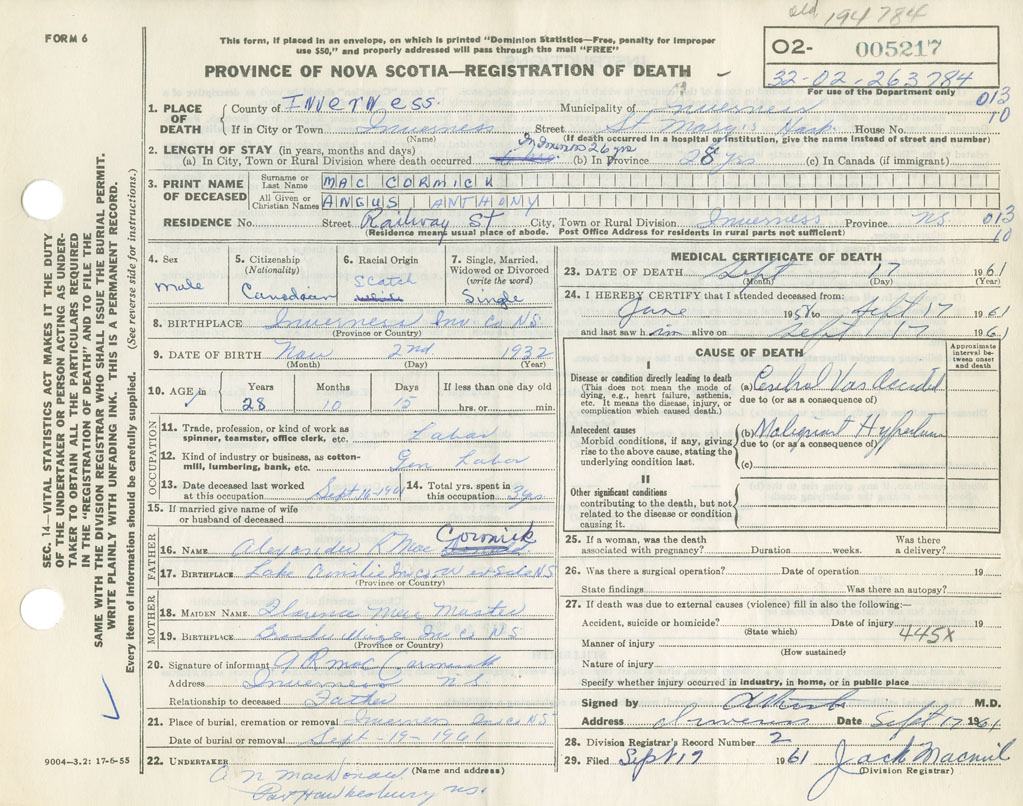 old 194784
FORM 6
This form, if placed in an envelope, on which is printed "Dominion Statistics—Free, penalty for improper
use $50," and properly addressed will pass through the mail "FREE"
O2- 005217
32-02-263784
For use of the Department only
PROVINCE OF NOVA SCOTIA—REGISTRATION OF DEATH
1. PLACE OF DEATH
County of Inverness. Municipality of Inverness 013
If in City or Town Inverness Street St Mary's Hosp. House No. 10
(Name) (If death occurred in a hospital or institution, give the name instead of street and number)
2. LENGTH OF STAY (in years, months and days) In Inverness 26 yrs
(a) In City, Town or Rural Division where death occurred (b) In Province 28 yrs (c) In Canada (if immigrant)
3. PRINT NAME OF DECEASED
Surname or Last Name MAC CORMICK
All Given or Christian Names ANGUS, ANTHONY
RESIDENCE No. Street Railway St City, Town or Rural Division Inverness Province NS 013
(Residence means usual place of abode. Post Office Address for residents in rural parts not sufficient) 10
4. Sex Male
5. Citizenship (Nationality) Canadian
6. Racial Origin Scotch
7. Single, Married, Widowed or Divorced (write the word) Single
8. BIRTHPLACE Inverness Inv. Co NS.
(Province or Country)
9. DATE OF BIRTH Nov 2nd 1932
(Month) (Day) (Year)
10. AGE in Years Months Days If less than one day old
28 10 15 hrs. or min.
OCCUPATION
11. Trade, profession, or kind of work as
spinner, teamster, office clerk, etc. Labor
12. Kind of industry or business, as cotton-
mill, lumbering, bank, etc. Gen Labor
13. Date deceased last worked
at this occupation Sept 16-1961
14. Total yrs. spent in
this occupation 3 yrs
15. If married give name of wife
or husband of deceased
FATHER
16. NAME Alexander R Mac Cormick
17. BIRTHPLACE Lake Ainslie In co. West Side NS
(Province or Country)
MOTHER
18. MAIDEN NAME Florence Mac Master
19. BIRTHPLACE In Co NS
(Province or Country)
20. Signature of informant A R Mac Cormick
Address Inverness NS
Relationship to deceased Father
21. Place of burial, cremation or removal Inverness Inv co NS
Date of burial or removal Sept-19-1961
22. UNDERTAKER A N MacDonald
(Name and address)
Port Hawkesbury NS.
MEDICAL CERTIFICATE OF DEATH
23. DATE OF DEATH Sept 17 1961
(Month) (Day) (Year)
24. I HEREBY CERTIFY that I attended deceased from:
June 1958 to Sept 17 1961
and last saw him alive on Sept 17 1961
CAUSE OF DEATH
Approximate interval between onset and death
I
Disease or condition directly leading to death
(This does not mean the mode of
dying, e.g., heart failure, asthenia,
etc. It means the disease, injury, or
complication which caused death.)
(a) Cerebral Vas Accident
due to (or as a consequence of)
Antecedent causes
Morbid conditions, if any, giving
rise to the above cause, stating the
underlying condition last.
(b) Malignant Hypertension
due to (or as a consequence of)
(c)
II
Other significant conditions
contributing to the death, but not
related to the disease or condition
causing it.
25. If a woman, was the death
associated with pregnancy? Duration weeks. Was there
a delivery?
26. Was there a surgical operation? Date of operation 19
State findings Was there an autopsy?
27. If death was due to external causes (violence) fill in also the following:—
Accident, suicide or homicide? Date of injury 19
(State which) 445X
Manner of injury
(How sustained)
Nature of injury
Specify whether injury occurred in industry, in home, or in public place
Signed by M.D.
Address Inverness Date Sept 17 1961
28. Division Registrar's Record Number 2
29. Filed Sept 19 1961 Jack Macneil
(Division Registrar)
SEC. 14—VITAL STATISTICS ACT MAKES IT THE DUTY
OF THE UNDERTAKER OR PERSON ACTING AS UNDER-
TAKER TO OBTAIN ALL THE PARTICULARS REQUIRED
IN THE "REGISTRATION OF DEATH" AND TO FILE THE
SAME WITH THE DIVISION REGISTRAR WHO SHALL ISSUE THE BURIAL PERMIT.
WRITE PLAINLY WITH UNFADING INK. THIS IS A PERMANENT RECORD.
Every item of information should be carefully supplied. (See reverse side for instructions.)
9004—3.2: 17-6-55